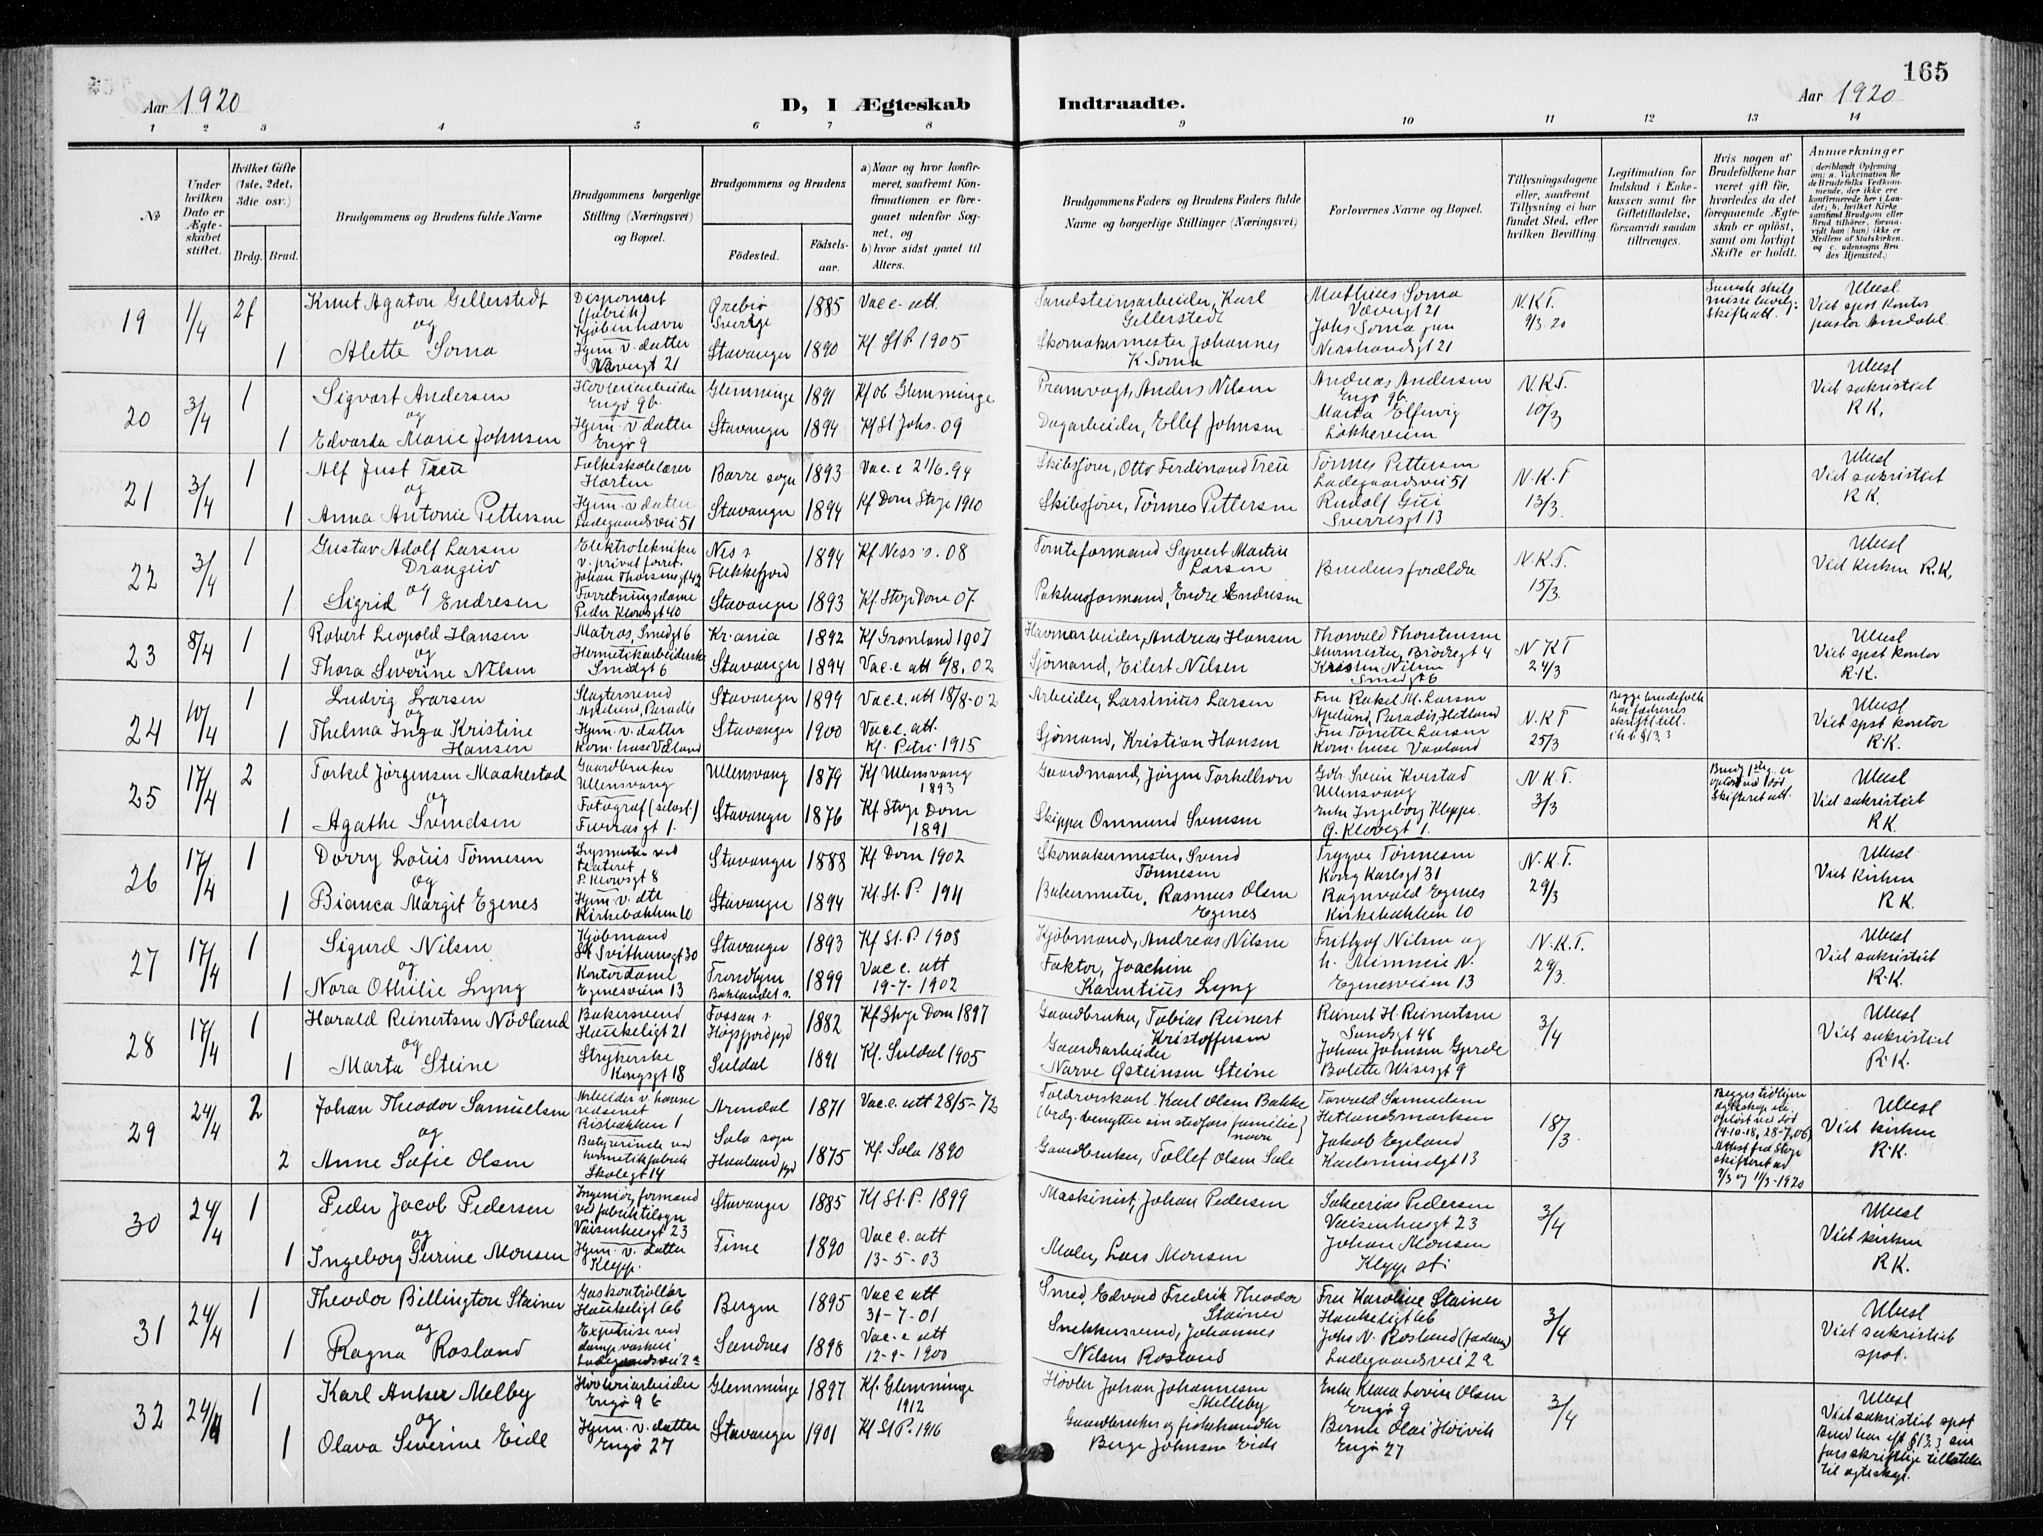 165
Aar 1920
D, I Ægteskab Indtraadte.
Aar 1920
1 2 3 4 5 6 7 8 9 10 11 12 13 14
№
Under hvilken Dato er Ægteskabet stiftet.
Hvilket Gifte (1ste, 2det, 3die osv.)
Brdg. Brud.
Brudgommens og Brudens fulde Navne
Brudgommens borgerlige Stilling (Næringsvei) og Bopæl.
Brudgommens og Brudens
Fødested.
Fødselsaar.
a) Naar og hvor konfirmeret, saafremt Konfirmationen er foregaaet udenfor Sognet, og
b) hvor sidst gaaet til Alters.
Brudgommens Faders og Brudens Faders fulde Navne og borgerlige Stillinger (Næringsvei)
Forlovernes Navne og Bopæl.
Tillysningsdagene eller, saafremt Tillysning ei har fundet Sted, efter hvilken Bevilling
Legitimation for Indskud i Enkekassen samt for Giftetilladelse, forsaavidt saadan tiltrænges.
Hvis nogen af Brudefolkene har været gift før, hvorledes da det foregaaende Ægteskab er opløst, samt om lovligt Skifte er holdt.
Anmerkninger
19 1/4 2f Knut Agaton Gellerstedt Ørebro Sverige 1885 Vac. e. att. Sandsteinsarbeider, Karl Gellerstedt Mathias Soma N.K.T. 9/3.20 Ubesl
og Kjøbenhavn Johs Soma jun Viet spst kontor
1 Alette Soma Hjem. v. datter Stavanger 1890 Kf St P. 1905 Skomakermester Johannes K Soma Nerstrandsgt 21 pastor Arndahl.
20 3/4 1 Sigvart Andersen Høvleriarbeider Engø 9b Glemminge 1891 Kf ob Glemminge Pramvogt, Anders Nilsen Andreas Andersen Engø 9b N.K.T. 10/3 Ubesl
og Viet sakristiet
1 Edvarda Marie Johnsen Hjem. v. datter Engø 9 Stavanger 1894 Kf St Johs. 09 Dagarbeider, Ellef Johnsen Marta Løkkeveien R.K.
21 3/4 1 Alf Just Treu Folkeskolelærer Horten Borre sogn 1893 Vac. e 21/6.94 Skibsfører, Otto Ferdinand Treu Tønnes Pettersen Ladegaardsvei 51 N.K.T 13/3 Ubesl
og Viet sakristiet
1 Anna Antonie Pettersen Hjem. v datter Ladegaardsvei 51 Stavanger 1894 Kf Dom Stvgr 1910 Skibsfører, Tønnes Pettersen Rudolf Sverresgt 13 R.K.
22 3/4 1 Gustav Adolf Larsen Drangeid Elektrotekniker v. privat forret. Nes s Flekkefjord 1894 Kf Ness s. 08 Tomteformand Syvert Martin Larsen Brudens forældre N.K.T. 15/3 Ubesl
og Viet kirken R.K.
1 Sigrid Endresen Forretningsdame Peder Klowsgt 40 Stavanger 1893 Kf. Stvgr Dom 07. Pakhusformand, Endre Endresen
23 8/4 1 Robert Leopold Hansen Matros, Smedgt 6 Kr.ania 1892 Kf Grønland 1907 Havnearbeider, Andreas Hansen Thorvald Thorstensen Murmester, N KT 24/3 Ubesl
og Viet spst kontor
1 Thora Severine Nilsen Hermetikarbeiderske Smedgt 6 Stavanger 1894 Vac. e att 6/8. 02 Sjømand, Eilert Nilsen Kristen Nilsen Smedgt 6 R.K.
24 10/4 1 Ludvig Larsen Slagtersvend Aspelund, Paradis Stavanger 1899 Vac. e. att 18/8-02 Arbeider, Larsinius Larsen Fru Rakel M. Larsen Aspelund, Paradis, Hetland N.K.T 25/3 Begge brudefolk har fædrenes skriftl till. Ubesl
og Viet spst kontor
1 Thelma Inga Kristine Hansen Hjem. v. datter Stavanger 1900 Vac. e. att. Kf. Petri 1915 Sjømand, Kristian Hansen Fru Tonette Larsen R.K.
25 17/4 2 Torkel Jørgensen Maakestad Gaardbruker Ullensvang Ullensvang 1879 Kf Ullensvang 1893 Gaardmand, Jørgen Torkellsen Gdbr Svein Kvestad Ullensvang N.K.T. 3/3 Ubesl
og Viet sakristiet
1 Agathe Svendsen Fotograf (selvst) Stavanger 1876 Kf Stvgr Dom 1891 Skipper Ommund Svensen Enke Ingeborg Kleppe R K.
26 17/4 1 Dorry Louis Tønnesen Lysmester ved teateret P. Klowsgt 8 Stavanger 1888 Kf Dom 1902 Skomakermester, Svend Tønnesen Trygve Tønnesen Kong Karlsgt 31 N.K.T. 29/3 Ubesl
og Viet kirken
1 Bianca Margit Egenes Hjem. v. dtr Kirkebakken 10 Stavanger 1894 Kf St. P. 1911 Bakermester, Rasmus Olsen Egenes Ragnvald Egenes Kirkebakken 10 R K.
27 17/4 1 Sigurd Nilsen Kjøbmand St Svithunsgt 30 Stavanger 1893 Kf St. P. 1908 Kjøbmand, Andreas Nilsen Fritjof Nilsen og N.K.T. 29/3 Ubesl
og Viet sakristiet
1 Nora Othilie Lyng Kontordame Egenesveien 13 Trondhjem Baklandet s. 1899 Vac e. att 19-7-1902 Faktor, Joachim Karentius Lyng h. Minnie N. Egenesveien 13 R.K.
28 17/4 1 Harald Reinertsen Nødland Bakersvend Haukeligt 21 Fossan s Høgsfjord pgd 1882 Kf Stvgr Dom 1897 Gaardbruker, Tobias Reinert Kristoffersen Reinert H. Reinertsen Sandsgt 46 3/4 Ubesl
og Viet sakristiet
1 Marta Steine Strykerske Kongsgt 18 Suldal 1891 Kf. Suldal 1905 Gaardsarbeider Narve Østeinsen Steine Johan Johnsen Gjerde Bolette Wiesegt 9 R.K.
29 24/4 2 Johan Theodor Samuelsen Arbeider v. havnevæsenet Risbakken 1 Arendal 1871 Vac. e. att 28/5-72 Toldrorskarl Karl Olsen Bakke (brdg. benytter sin stedfars familienavn) Torvald Samuelsen Hetlandsmarken 18/3 Begges tidligere egteskap er opløst ved død (4-10-18, 28-7.06) Attest fra Stvgr skifteret av 9/3 og 11/3-1920 Ubesl
og Viet kirken
2 Anne Sofie Olsen Bøtgerinde ved hermetikfabrik Skolegt 14 Sola sogn Haaland pgd 1875 Kf. Sola 1890 Gaardbruker, Tollef Olsen Sola Jakob Egeland Karlsmindegt 13 R.K.
30 24/4 1 Peder Jacob Pedersen Ingeniør, formand ved fabriktilsyn Vaisenhusgt 23 Stavanger 1885 Kf St. P. 1899 Maskinist, Johan Pedersen Sakarias Pedersen Vaisenhusgt 23 3/4 Ubesl
og Viet kirken
1 Ingeborg Gurine Monsen Hjem. v. datter Klepp. Time 1890 Vac e. att 13-5-03 Maler, Lars Monsen Johan Monsen Klepp st. R K.
31 24/4 1 Theodor Billington Stainer Gaskontrollør Haukeligt 66 Bergen 1895 Vac e att 31-7-01 Smed, Edvard Fredrik Theodor Stainer Fru Karoline Stainer Haukeligt 66 3/4 Ubesl
og Viet sakristiet
1 Ragna Rosland Expetrise ved dampvaskeri Ladegaardsvei 2a Sandnes 1898 Vac. e att 12-9-1900 Snekkersvend, Johannes Nilsen Rosland Johs N. Rosland (faderen) Ladegaardsvei 2a spst.
32 24/4 1 Karl Anker Melby Høvleriarbeider Engø 9 b Glemminge 1897 Kf. Glemminge 1912 Høvler Johan Johannesen Melleby Enke Klara Lovise Olsen Engø 9 3/4 Ubesl
og Viet sakristiet spst
1 Olava Severine Eide Hjem. v. datter Engø 27 Stavanger 1901 Kf St P. 1916 Gaardbruker og fiskehandler Berge Johnsen Eide Bernt Olai Høivik Engø 27 Brud har eft § 13.3 sin fars skriftlige tillatelse til egteskap.